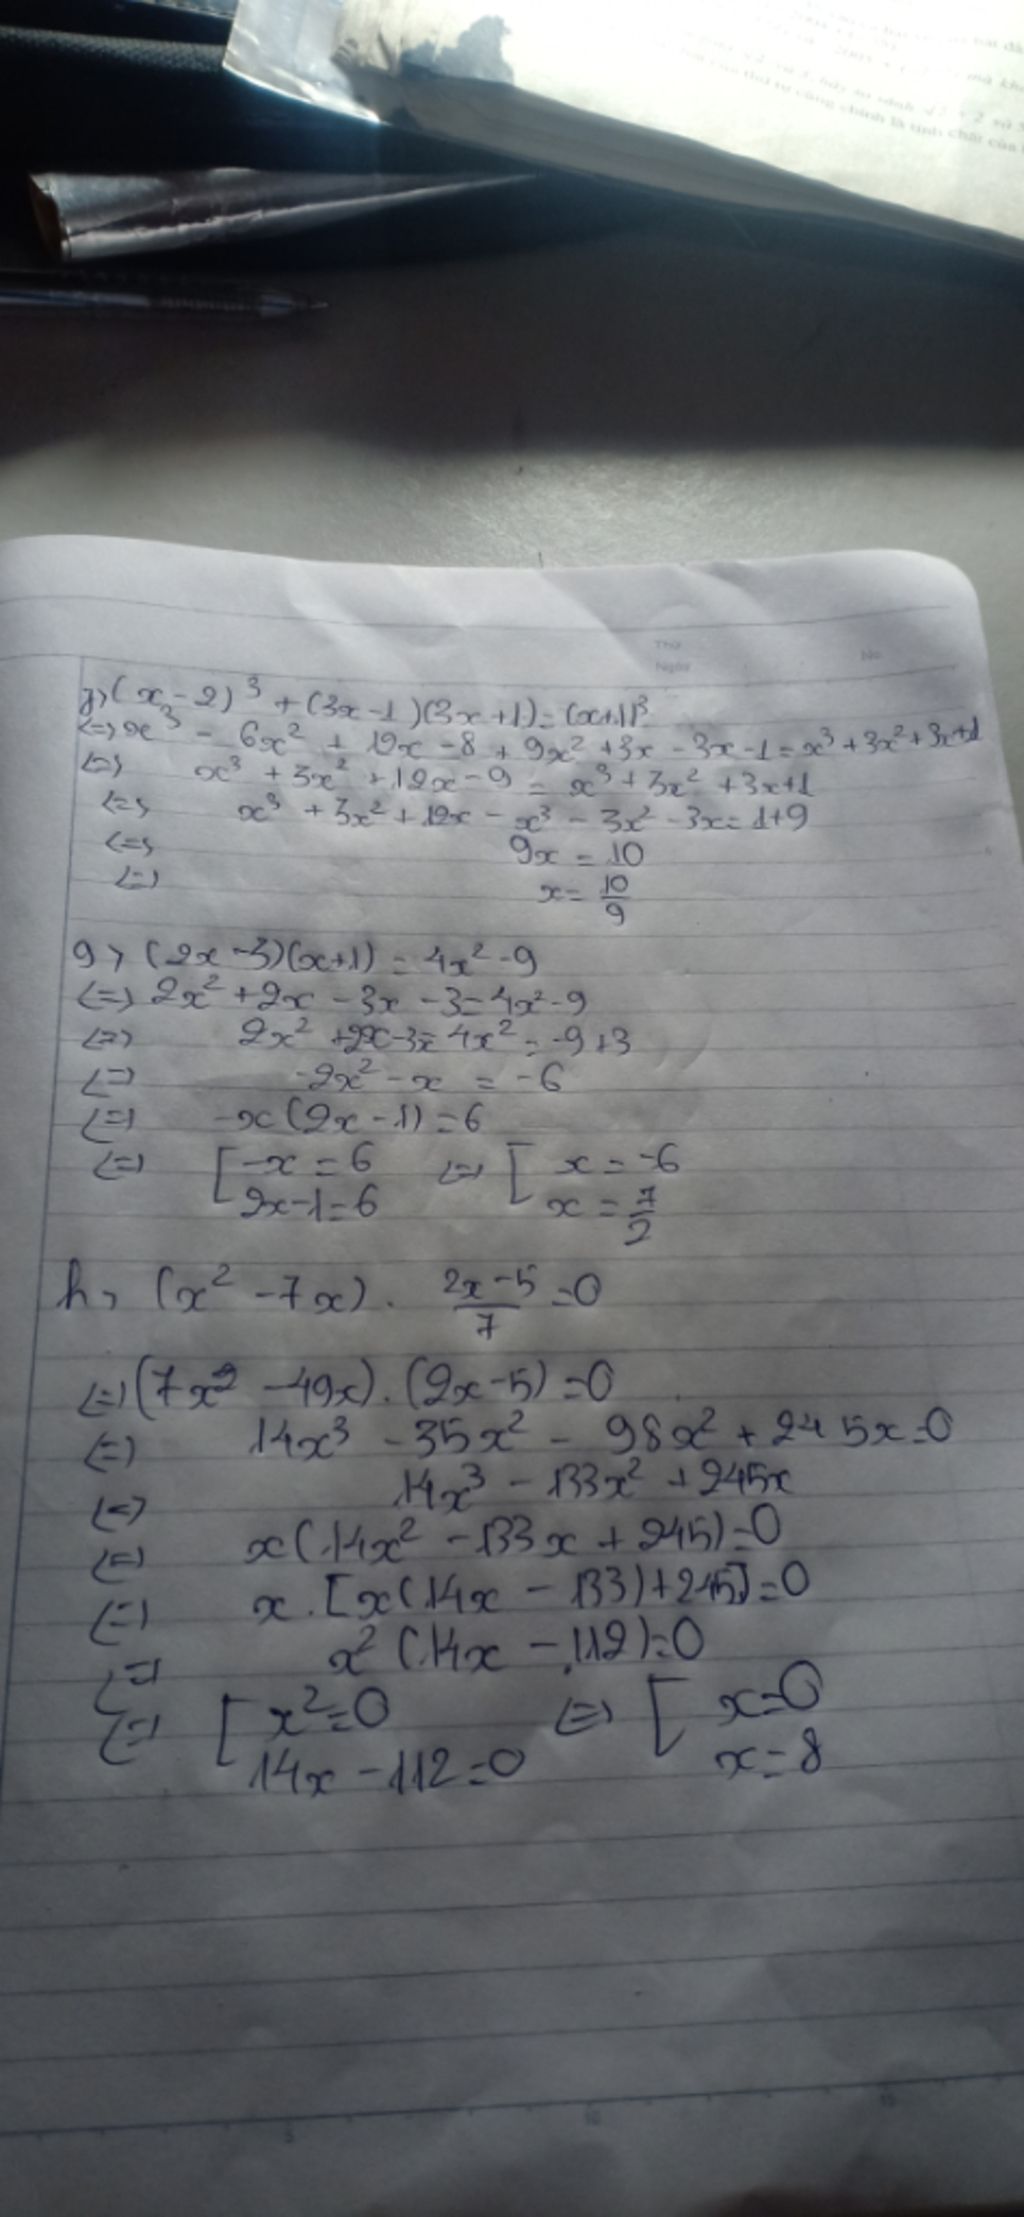 Thứ
Ngày
No.
f, (x-2)³ + (3x-1)(3x+1) = (x+1)³
<=> x³ - 6x² + 12x - 8 + 9x² + 3x - 3x - 1 = x³ + 3x² + 3x + 1
<=> x³ + 3x² + 12x - 9 = x³ + 3x² + 3x + 1
<=> x³ + 3x² + 12x - x³ - 3x² - 3x = 1 + 9
<=> 9x = 10
<=> x = 10/9
g, (2x-3)(x+1) = 4x² - 9
<=> 2x² + 2x - 3x - 3 = 4x² - 9
<=> 2x² + 2x - 3x - 4x² = -9 + 3
<=> -2x² - x = -6
<=> -x(2x-1) = 6
<=> [ -x = 6 <=> [ x = -6
2x-1 = 6 x = 7/2
h, (x² - 7x) . (2x-5)/7 = 0
<=> (7x² - 49x) . (2x-5) = 0
<=> 14x³ - 35x² - 98x² + 245x = 0
<=> 14x³ - 133x² + 245x
<=> x(14x² - 133x + 245) = 0
<=> x . [x(14x - 133) + 245] = 0
<=> x² (14x - 112) = 0
<=> [ x² = 0 <=> [ x = 0
14x - 112 = 0 x = 8